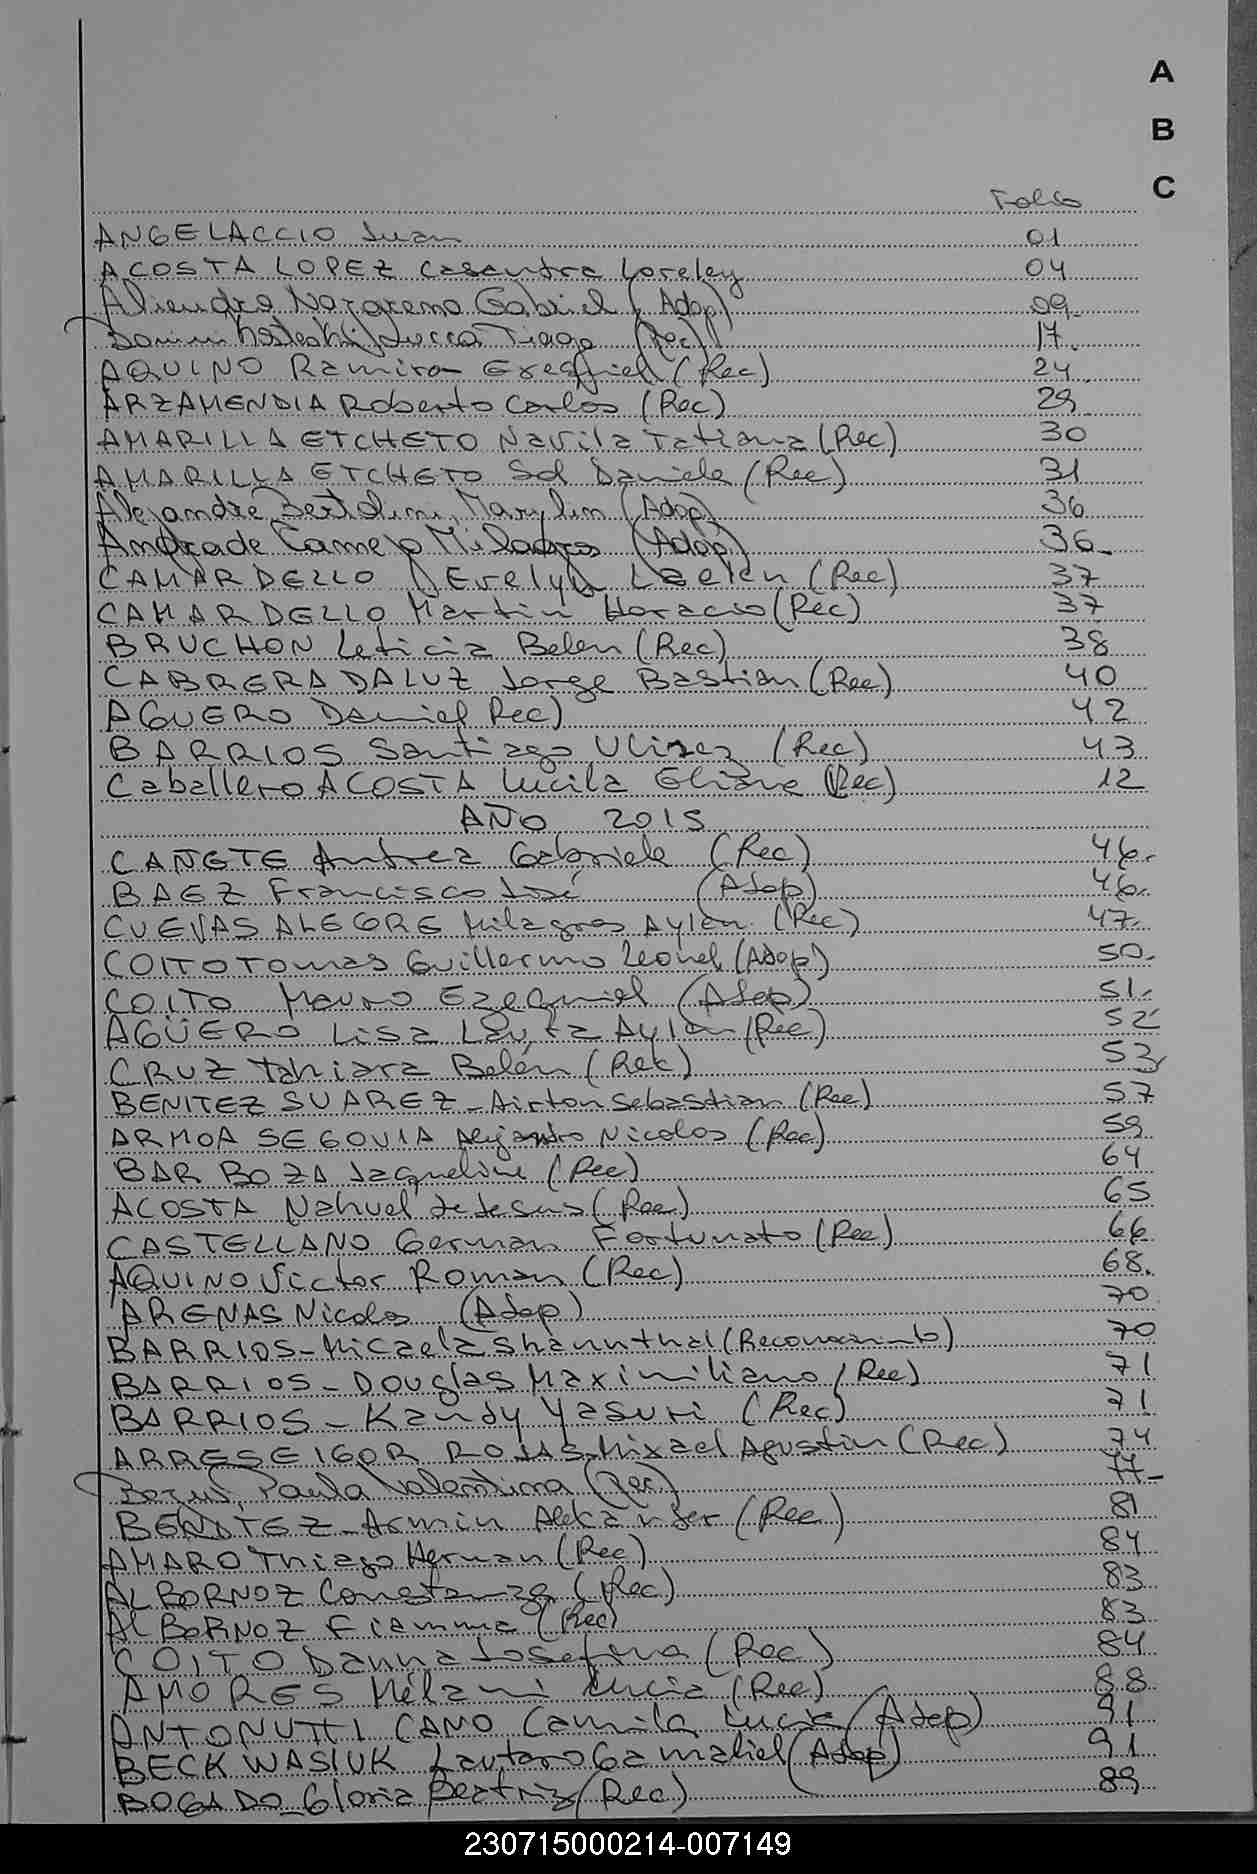 A
B
C
Folio
ANGELACCIO Juan 01
ACOSTA LOPEZ Casandra Loreley 04
Aliendro Nazareno Gabriel (Adop) 09.
Tiago (Rec) 17.
AQUINO Ramiro Exequiel (Rec) 24.
ARZAMENDIA Roberto Carlos (Rec) 29
AMARILLA ETCHETO Navila Tatiana (Rec) 30
AMARILLA ETCHETO Sol Daniela (Rec) 31
Alejandre Bertolini, Marylin (Adop) 36
Andrade Camejo Milagros (Adop) 36.
CAMARDELLO Evelyn (Rec) 37
CAMARDELLO Martin Horacio (Rec) 37
BRUCHON Leticia Belen (Rec) 38
CABRERA DALUZ Jorge Bastian (Rec) 40
AGUERO Daniel Rec) 42
BARRIOS Santiago Ulises (Rec) 43
Caballero ACOSTA Lucila Eliane (Rec) 12
AÑO 2015
CAÑETE Andrea Gabriela (Rec) 46.
BAEZ Francisco José (Adop) 46.
CUEVAS ALEGRE Milagros Aylen (Rec) 47.
COITO Tomas Guillermo Leonel (Adop) 50.
COITO Mauro Ezequiel (Adop) 51.
AGÜERO Lisa Aylen (Rec) 52
CRUZ Tahiara Belén (Rec) 53,
BENITEZ SUAREZ - Airton Sebastian (Rec) 57
ARMOA SEGOVIA Alejandro Nicolas (Rec) 59
BARBOZA Jaqueline (Rec) 64
ACOSTA Nahuel de Jesus (Rec) 65
CASTELLANO German Fortunato (Rec) 66
AQUINO Victor Roman (Rec) 68.
ARENAS Nicolas (Adop) 70
BARRIOS - Micaela Shannthal 70
BARRIOS - Douglas Maximiliano (Rec) 71
BARRIOS - Kandy Yasuri (Rec) 71
ARRESEIGOR ROJAS Mixael Agustin (Rec) 74
Paula Valentina (Rec) 77-
BENITEZ - Armin Alexander (Rec) 81
AMARO Thiago Hernan (Rec) 84
ALBORNOZ Constanza (Rec) 83
ALBORNOZ Fiamma (Rec) 83
COITO Danna Josefina (Rec) 84
AMORES Mélani Lucia (Rec) 88
ANTONUTTI CANO Camila Lucia (Adop) 91
BECK WASIUK Lautaro Gamaliel (Adop) 91
BOGADO - Gloria Beatriz (Rec) 89
230715000214-007149